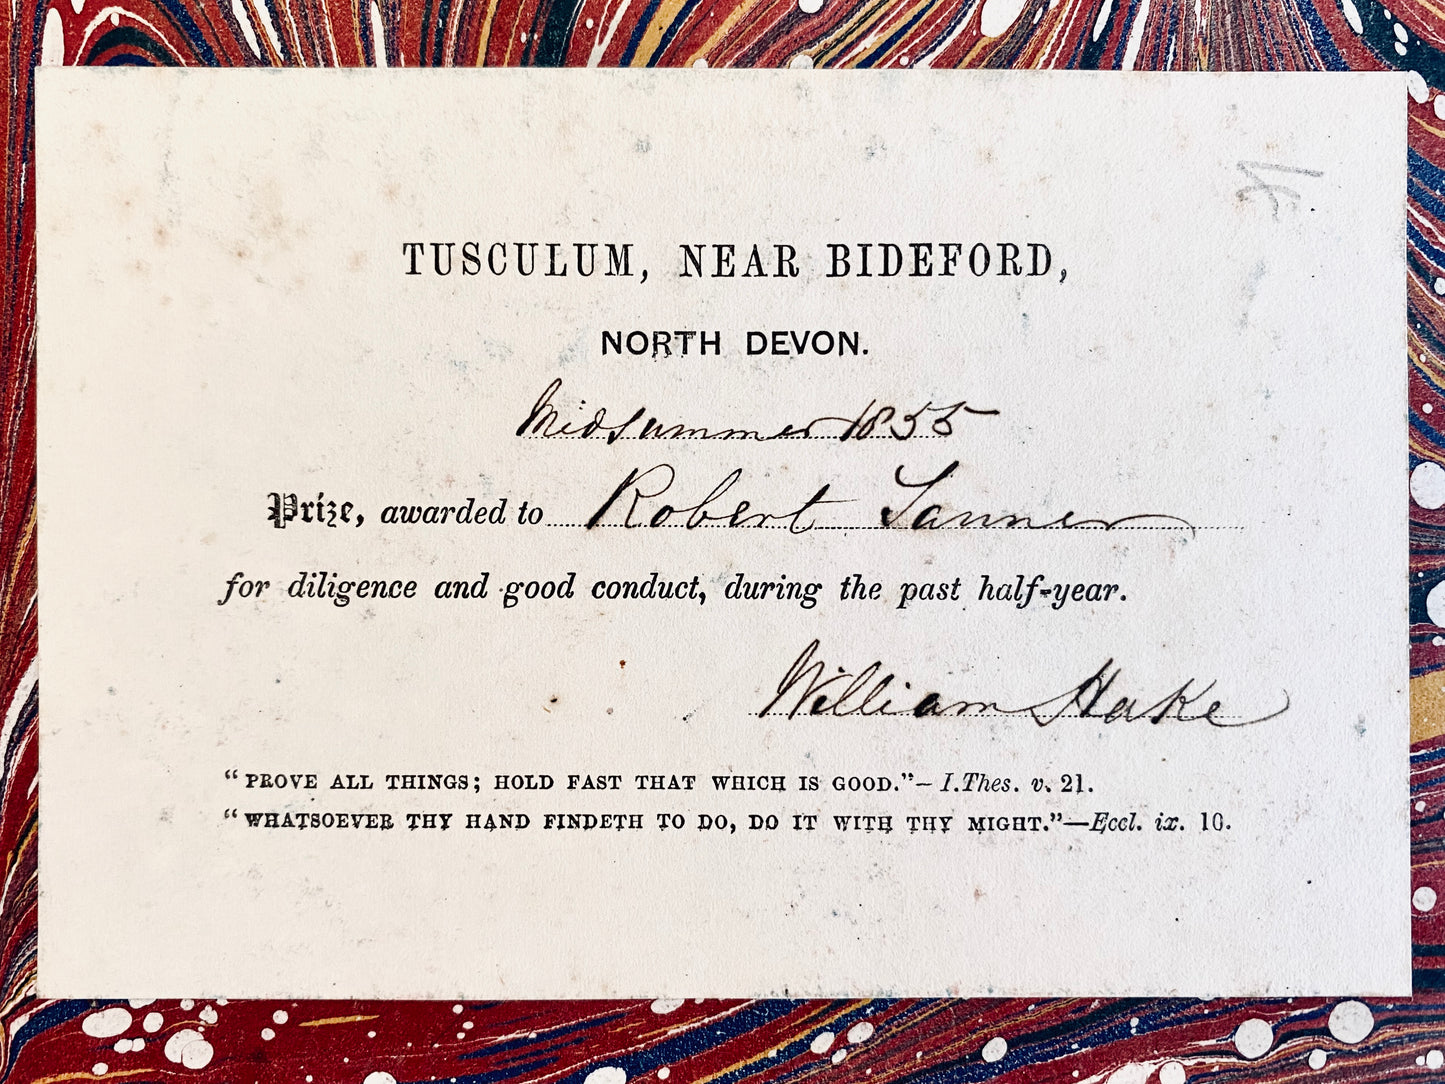 TUSCULUM, NEAR BIDEFORD,
NORTH DEVON.
Midsummer 1855
Prize, awarded to Robert Tanner
for diligence and good conduct, during the past half-year.
William Hake
“PROVE ALL THINGS; HOLD FAST THAT WHICH IS GOOD.”—I.Thes. v. 21.
“WHATSOEVER THY HAND FINDETH TO DO, DO IT WITH THY MIGHT.”—Eccl. ix. 10.